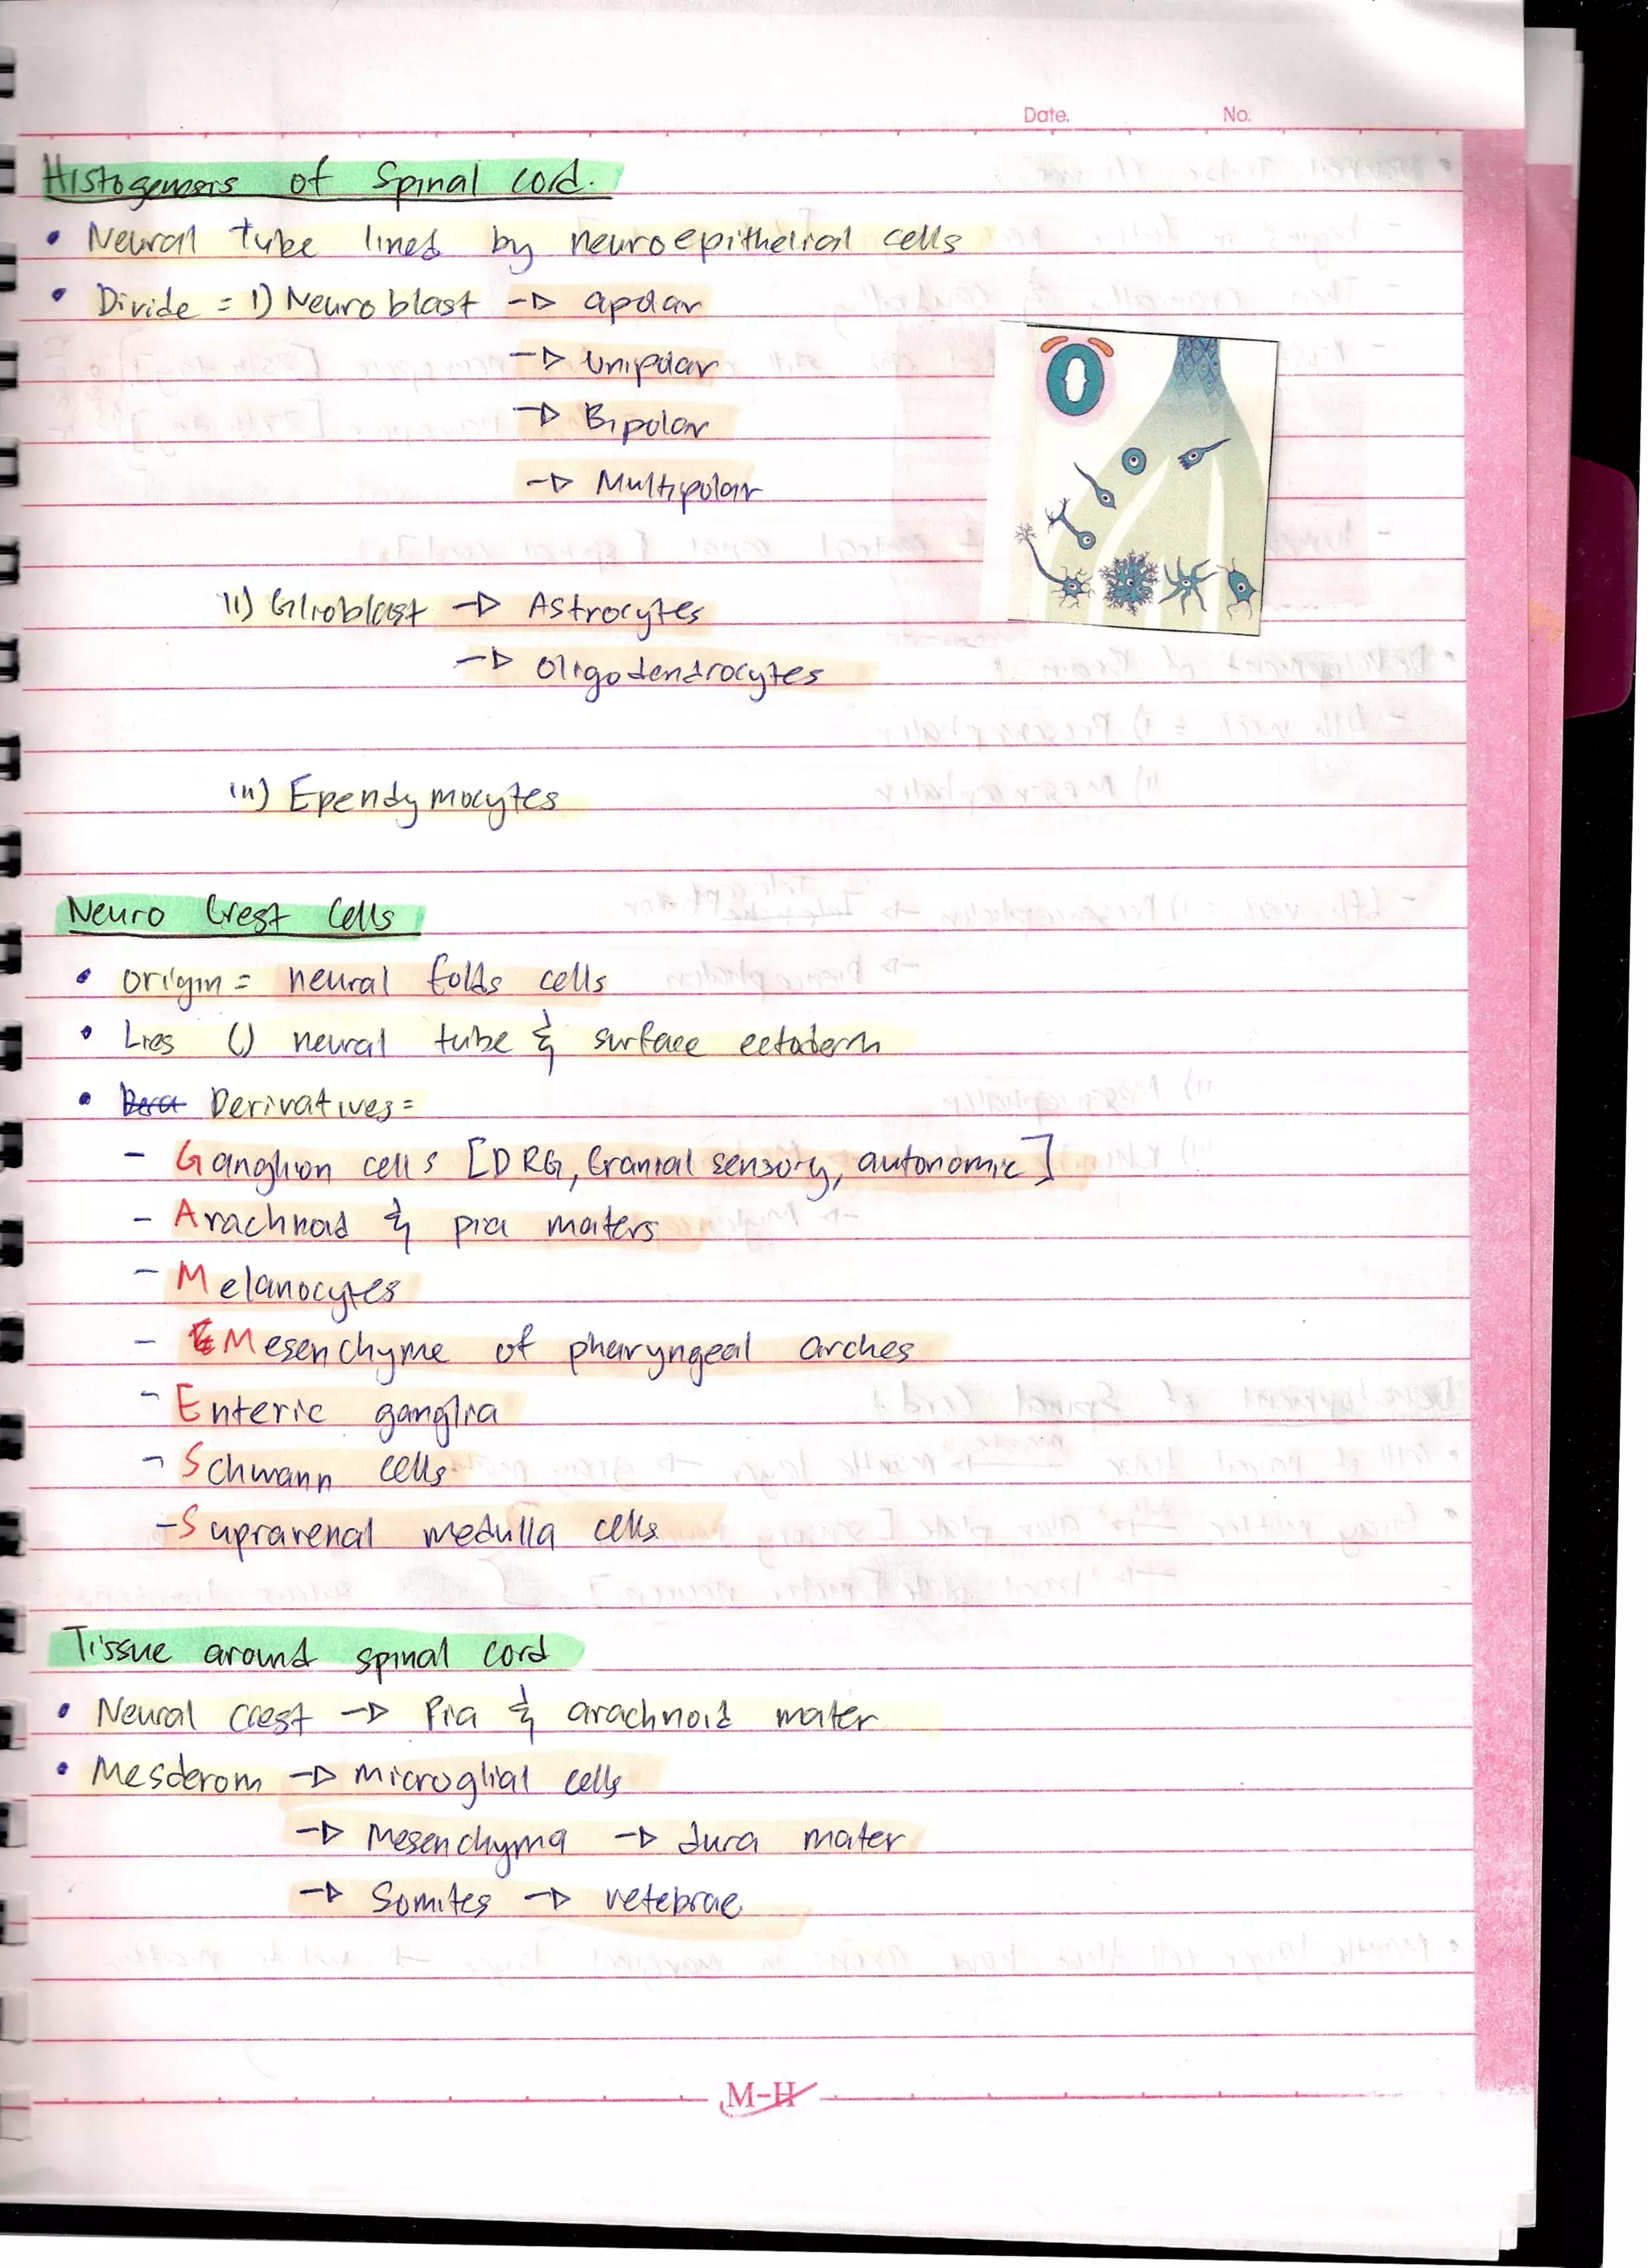 Date. No.
Histogenesis of Spinal cord.
• Neural tube lined by neuroepithelial cells
• Divide = 1) Neuroblast → apolar
→ Unipolar
→ Bipolar
→ Multipolar
11) Glioblast → Astrocytes
→ Oligodendrocytes
111) Ependymocytes
Neuro Crest Cells
• origin = neural folds cells
• Lies () neural tube & surface ectoderm
• Derivatives =
- Ganglion cells [DRG, Cranial sensory, autonomic]
- Arachnoid & pia maters
- Melanocytes
- Mesenchyme of pharyngeal arches
- Enteric ganglia
- Schwann cells
- Suprarenal medulla cells
Tissue around spinal cord
• Neural crest → Pia & arachnoid mater
• Mesderom → Microglial cells
→ Mesenchyma → dura mater
→ Somites → vetebrae
M-H